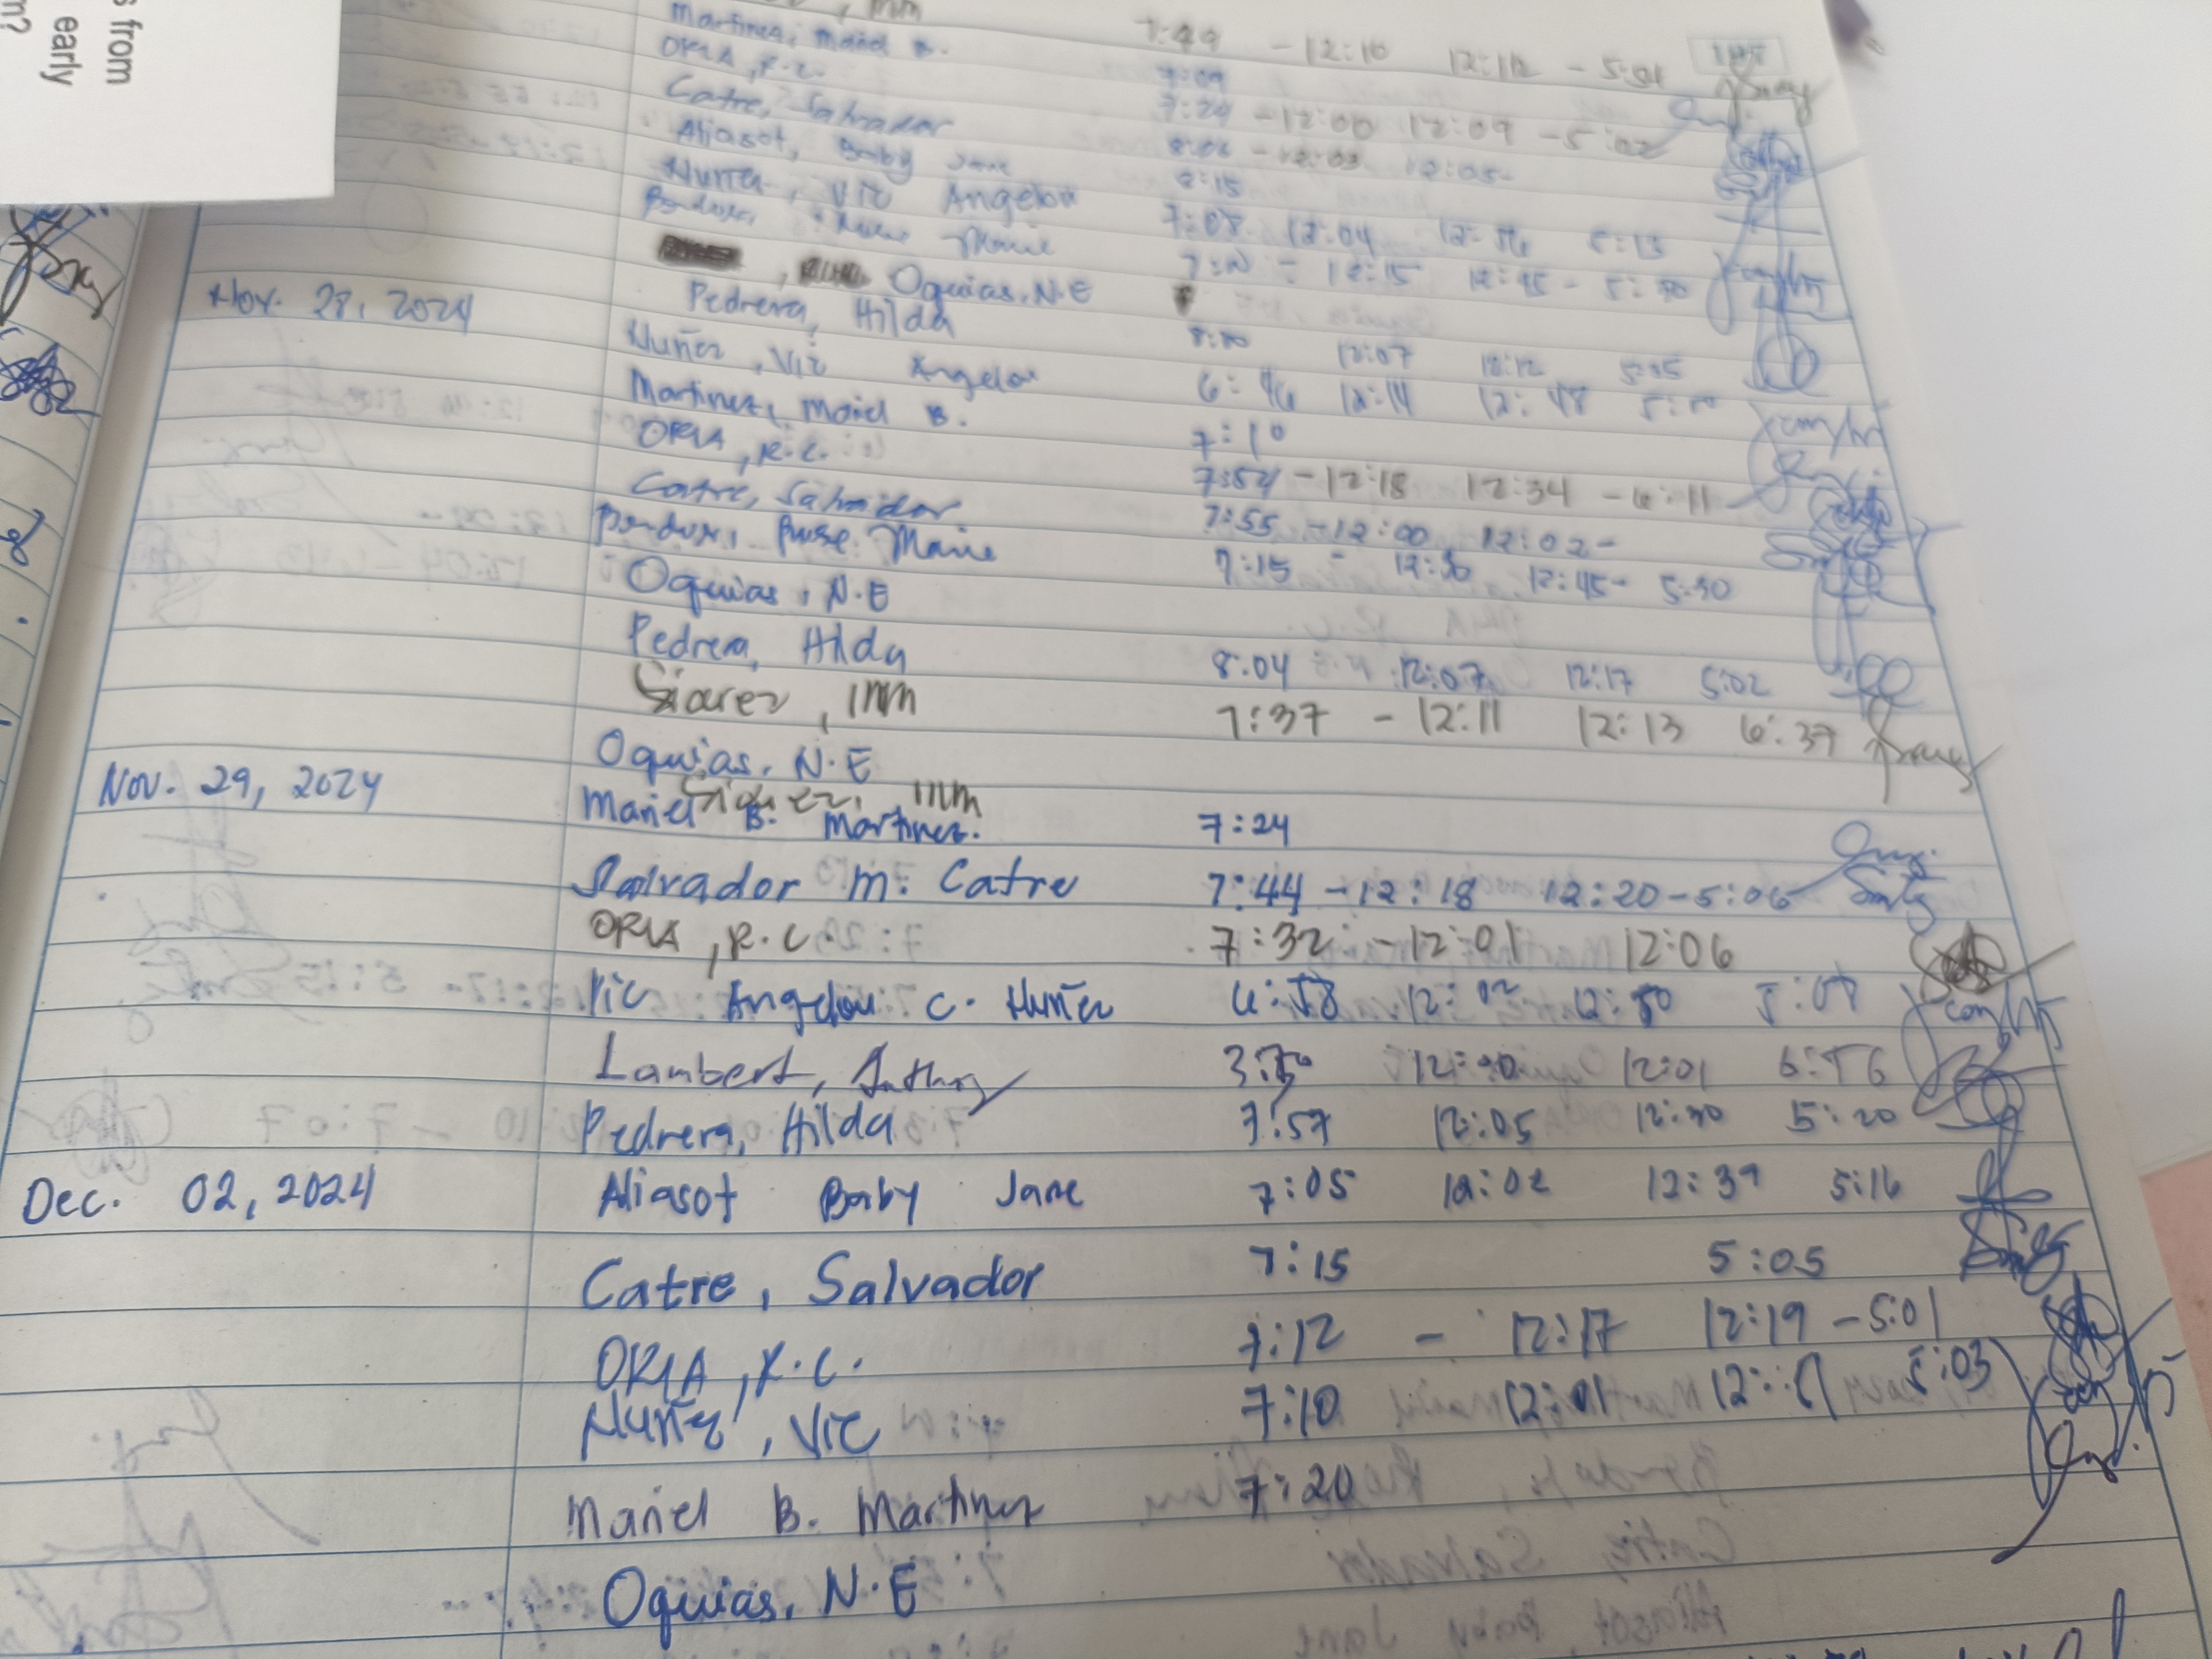 s from
early
m?
mm 7:49 - 12:10 12:12 - 5:01
Martinez, Mariel B. 7:09
ORIA, R.C. 7:24 - 12:00 12:09 - 5:02
Catre, Salvador 8:06 - 12:03 12:05-
Aliasot, Baby Jane 8:15
Nuñez, Vic Angelou 7:08 12:04 5:13
Marie 12:15 12:45 - 5:30
Oquias, N.E
Nov. 28, 2024 Pedrera, Hilda 12:07 12:12 5:05
Nuñez, Vic Angelou 6:46 12:14 12:48
Martinez, Mariel B. 7:10
ORIA, R.C. 7:54 - 12:18 12:34 - 6:11
Catre, Salvador 7:55 - 12:00 12:02-
Marie 7:15 - 12:30 12:45- 5:30
Oquias, N.E
Pedrera, Hilda 8:04 12:07 12:17 5:02
Siarez, mm 7:37 - 12:11 12:13 6:37
Oquias, N.E
Nov. 29, 2024 Siarez, mm
Mariel B. Martinez. 7:24
Salvador M. Catre 7:44 - 12:18 12:20 - 5:06
ORIA, R.C. 7:32 - 12:01 12:06
Vic Angelou C. Nuñez 6:58 12:02 12:50 5:08
Lambert, Anthony 12:01 6:56
Pedrera, Hilda 7:57 12:05 12:30 5:20
Dec. 02, 2024 Aliasot Baby Jane 7:05 12:02 12:39 5:16
Catre, Salvador 7:15 5:05
ORIA, R.C. 7:12 - 12:17 12:19 - 5:01
Nuñez, Vic 7:10 12:01 5:03
Mariel B. Martinez 7:20
Oquias, N.E